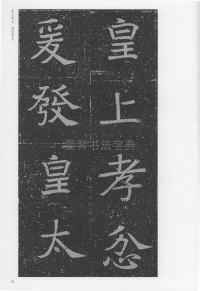 皇上孝忿
爰發皇太
墨客书法字典